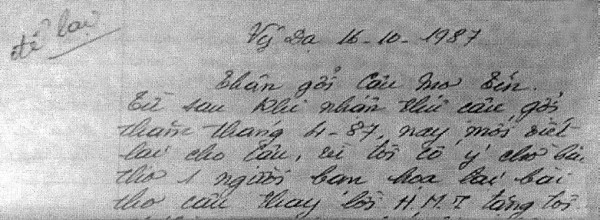 để lại
Vỹ Dạ 16-10-1987
Thân gởi Cậu Mơ Tiến.
Từ sau khi nhận thư cậu gởi
thăm tháng 4-87, nay mới viết
lại cho cậu, vì tôi có ý chờ bài
thơ 1 người bạn họa lại bài
thơ cậu thay lời H.M.T tặng tôi